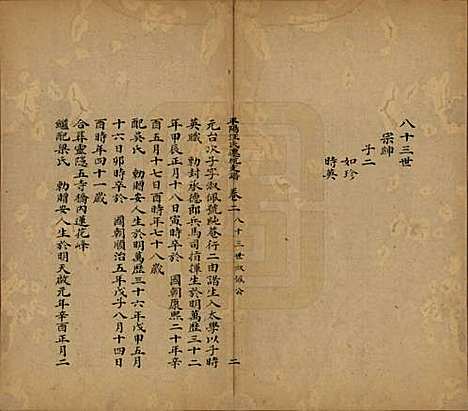 八十三世
宗缔
子二
如珍
時英
平陽汪氏遷杭支譜　卷二　八十三世叔佩公　二
元台次子字叔佩號純菴行二由諸生入太學以子時
英職　勅封承德郎兵馬司指揮生於明萬歷三十二
年甲辰正月十八日寅時卒於　國朝康熙二十年辛
酉五月十七日酉時年七十八歲
配吳氏　勅贈安人生於明萬歷三十六年戊申五月
十六日卯時卒於　國朝順治五年戊子八月十四日
酉時年四十一歲
合葬靈隱五寺橋内蓮花峰
繼配梁氏　勅贈安人生於明天啟元年辛酉正月二